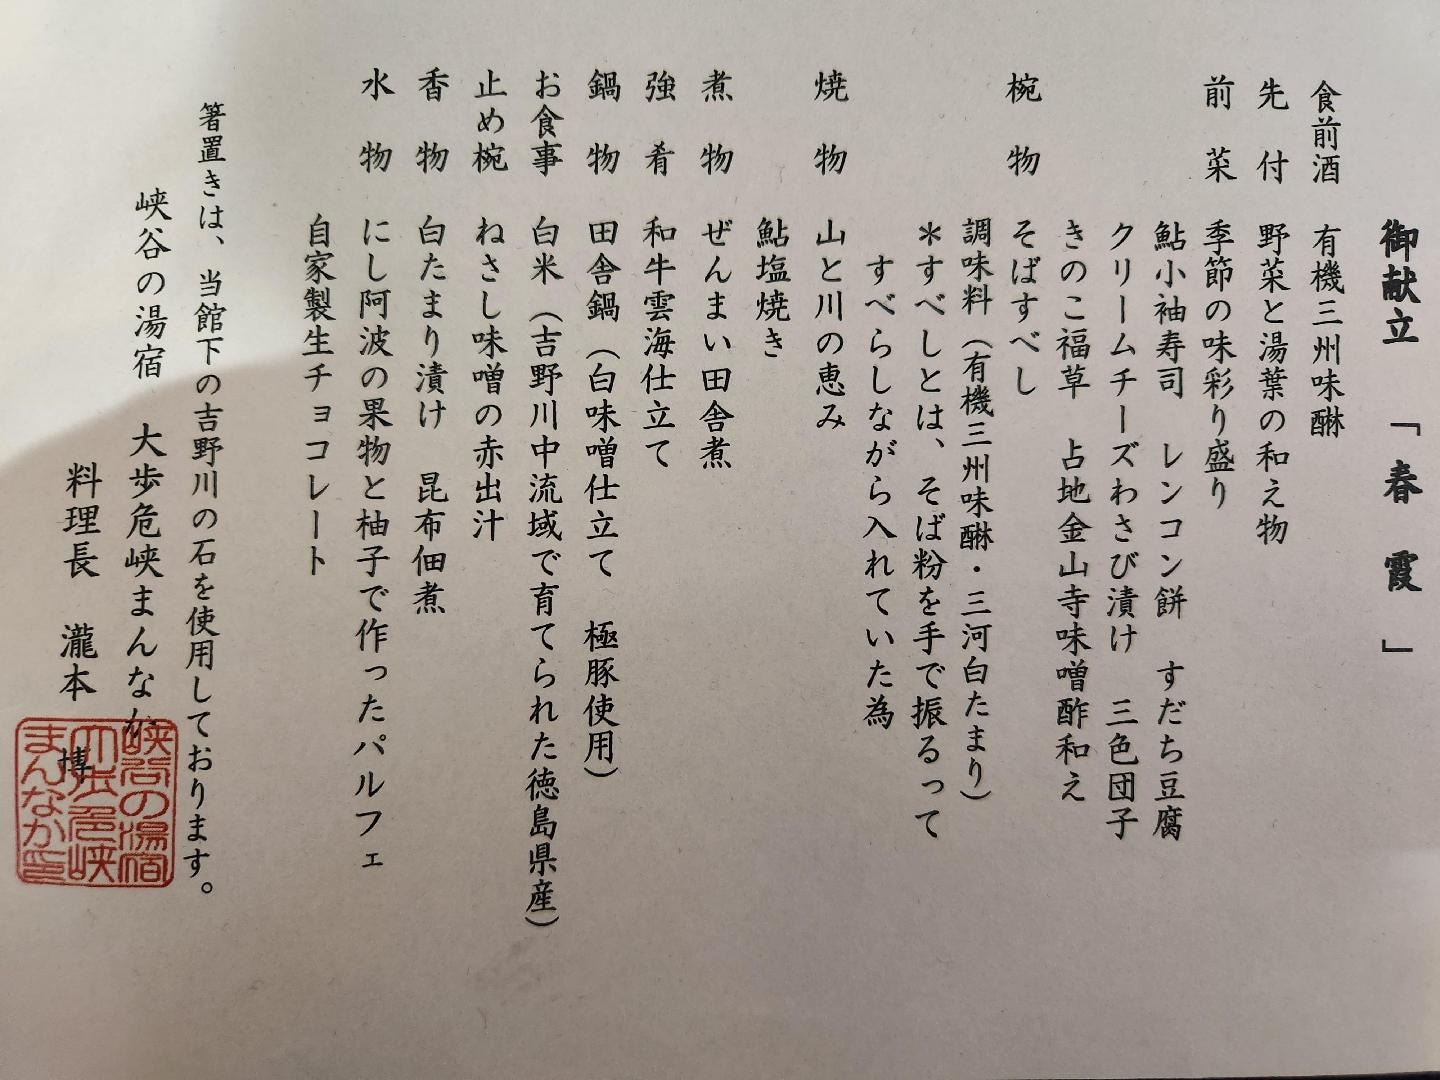 御献立 「春霞」
食前酒 有機三州味醂
先付 野菜と湯葉の和え物
前菜 季節の味彩り盛り
鮎小袖寿司 レンコン餅 すだち豆腐
クリームチーズわさび漬け 三色団子
きのこ福草 占地金山寺味噌酢和え
椀物 そばすべし
調味料(有機三州味醂・三河白たまり)
*すべしとは、そば粉を手で振るって
すべらしながら入れていた為
焼物 山と川の恵み
鮎塩焼き
煮物 ぜんまい田舎煮
強肴 和牛雲海仕立て
鍋物 田舎鍋(白味噌仕立て 極豚使用)
お食事 白米(吉野川中流域で育てられた徳島県産)
止め椀 ねさし味噌の赤出汁
香物 白たまり漬け 昆布佃煮
水物 にし阿波の果物と柚子で作ったパルフェ
自家製生チョコレート
箸置きは、当館下の吉野川の石を使用しております。
峡谷の湯宿 大歩危峡まんなか
料理長 瀧本 博
峡谷の湯宿
大歩危峡
まんなか印